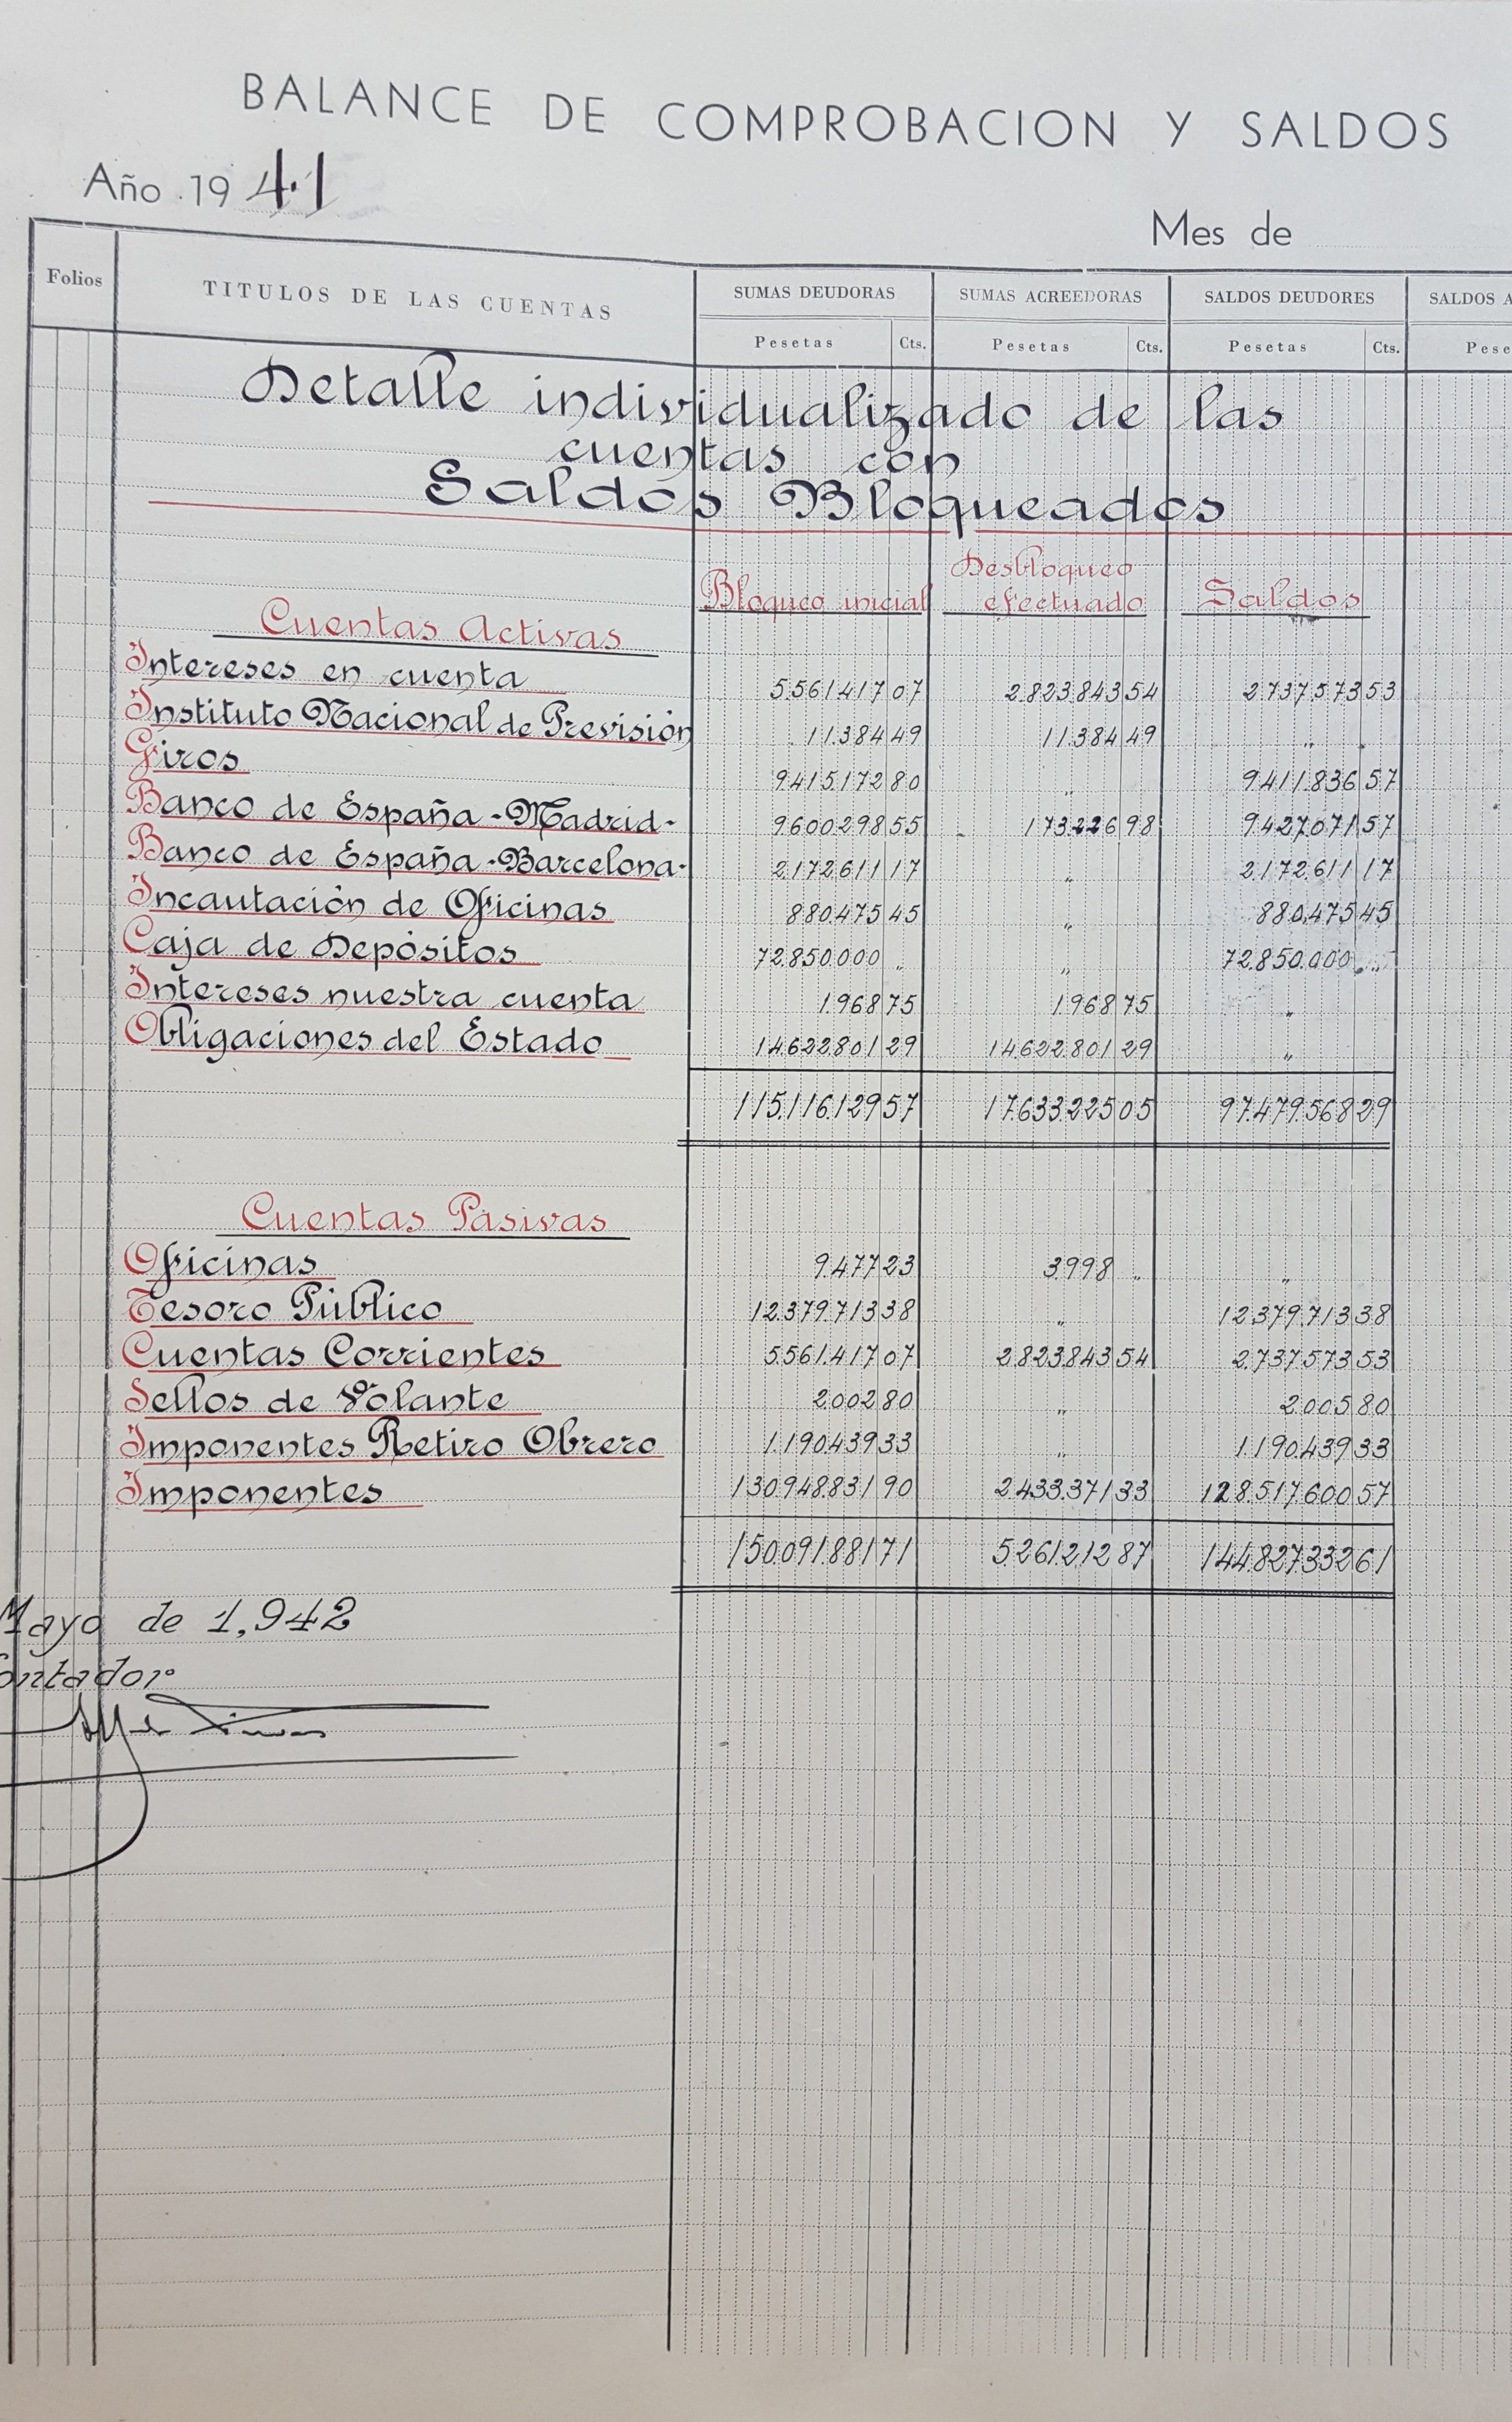 BALANCE DE COMPROBACION Y SALDOS
Año 1941
Mes de
Folios TITULOS DE LAS CUENTAS SUMAS DEUDORAS SUMAS ACREEDORAS SALDOS DEUDORES SALDOS A
Pesetas Cts. Pesetas Cts. Pesetas Cts. Pese
Detalle individualizado de las
cuentas con
Saldos Bloqueados
Bloqueo inicial Desbloqueo efectuado Saldos
Cuentas Activas
Intereses en cuenta 5.561.417 07 2.823.843 54 2.737.573 53
Instituto Nacional de Previsión 11.384 49 11.384 49 " "
Giros 9.415.172 80 " 9.411.836 57
Banco de España - Madrid - 9.600.298 55 173.226 98 9.427.071 57
Banco de España - Barcelona - 2.172.611 17 " 2.172.611 17
Incautación de Oficinas 880.475 45 " 880.475 45
Caja de Depósitos 72.850.000 " " 72.850.000 "
Intereses nuestra cuenta 1.968 75 1.968 75 "
Obligaciones del Estado 14.622.801 29 14.622.801 29 "
115.116.129 57 17.633.225 05 97.479.568 29
Cuentas Pasivas
Oficinas 9.477 23 3.998 " "
Tesoro Público 12.379.713 38 " 12.379.713 38
Cuentas Corrientes 5.561.417 07 2.823.843 54 2.737.573 53
Sellos de Volante 2.002 80 " 2.005 80
Imponentes Retiro Obrero 1.190.439 33 " 1.190.439 33
Imponentes 130.948.831 90 2.433.371 33 128.517.600 57
150.091.881 71 5.261.212 87 144.827.332 61
Mayo de 1,942
ontador